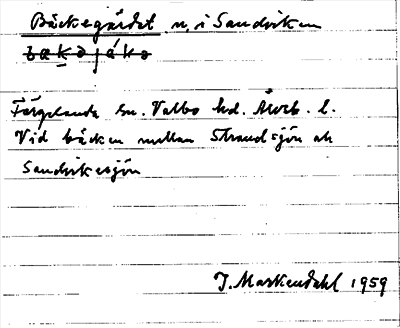 Bäckegärdet n. i Sandviken
Färgelanda sn. Valbo hd. Älvsb. l.
Vid bäcken mellan Strandsjön ah
Sandvikesjön
J. Markendahl 1959